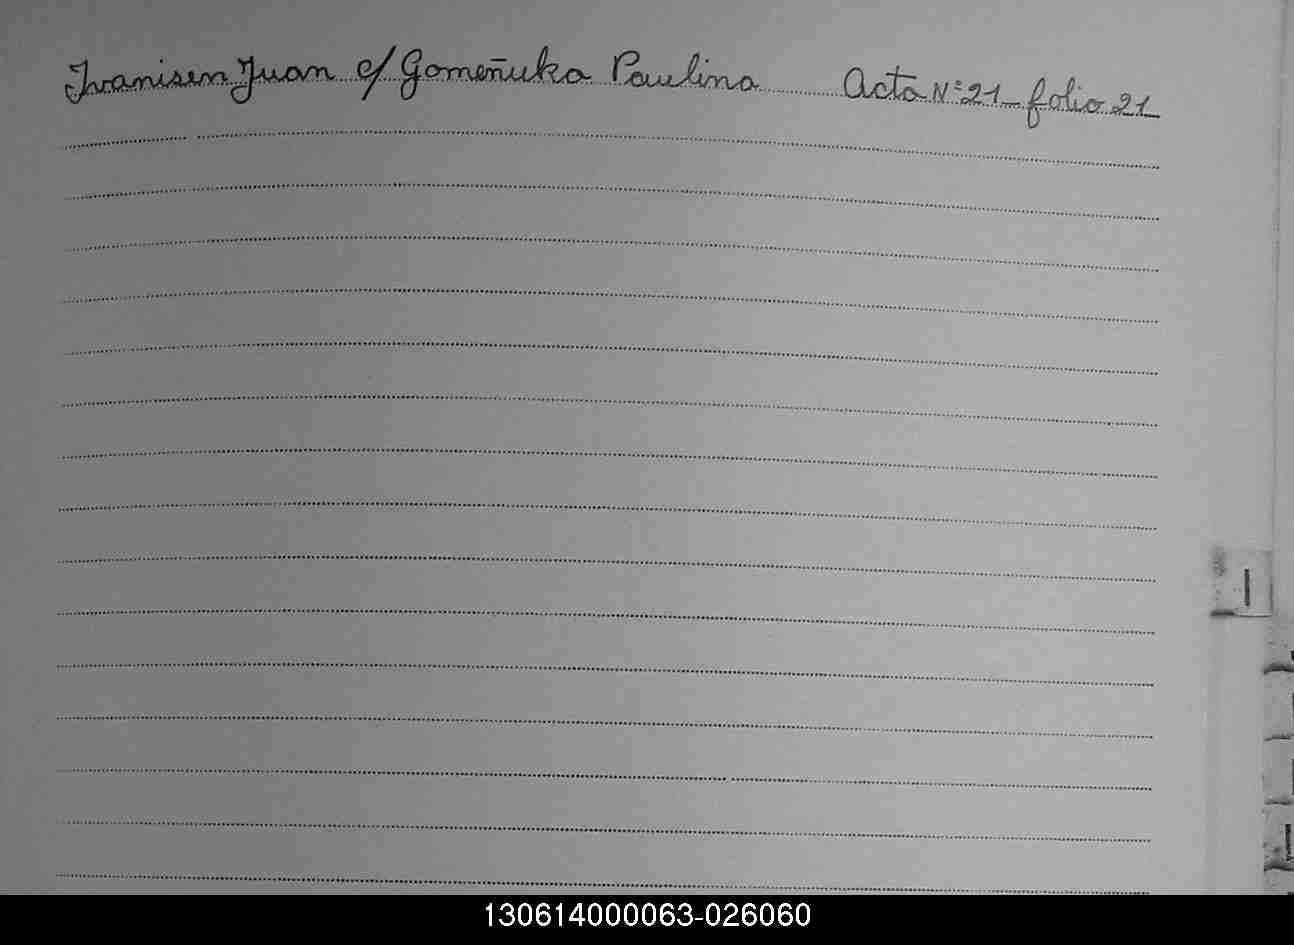 Ivanisen Juan c/ Gomeñuka Paulina Acta Nº 21 - folio 21
I
130614000063-026060